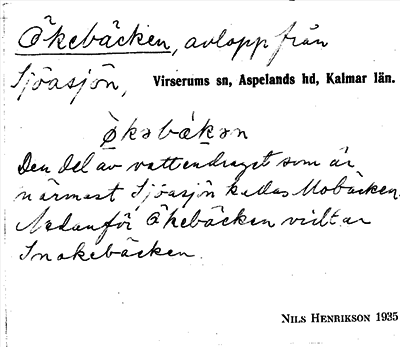 Ökebäcken, avlopp från
Sjöasjön, Virserums sn, Aspelands hd, Kalmar län.
økəbækən
Den del av vattendraget som är
närmast Sjöasjön kallas Mobäcken.
Nedanför Ökebäcken vidtar
Snokebäcken.
NILS HENRIKSON 1935